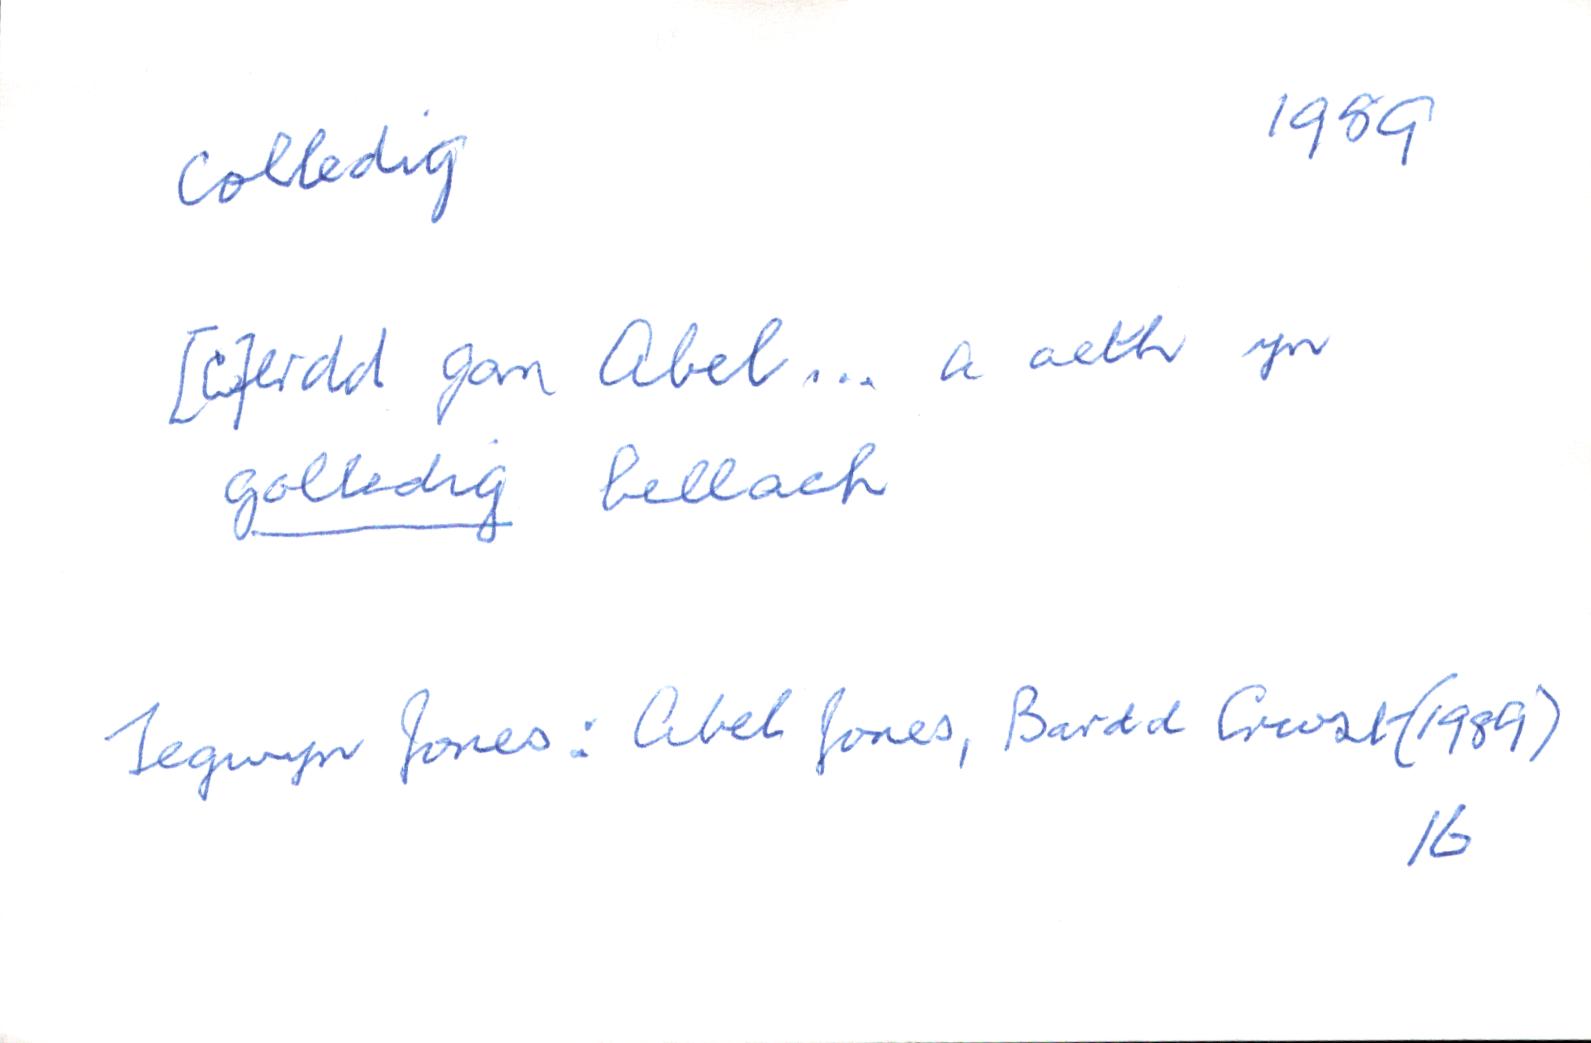 colledig 1989
[c]erdd gan Abel... a aeth yn
golledig bellach
Tegwyn Jones: Abel Jones, Bardd Crwst (1989)
16